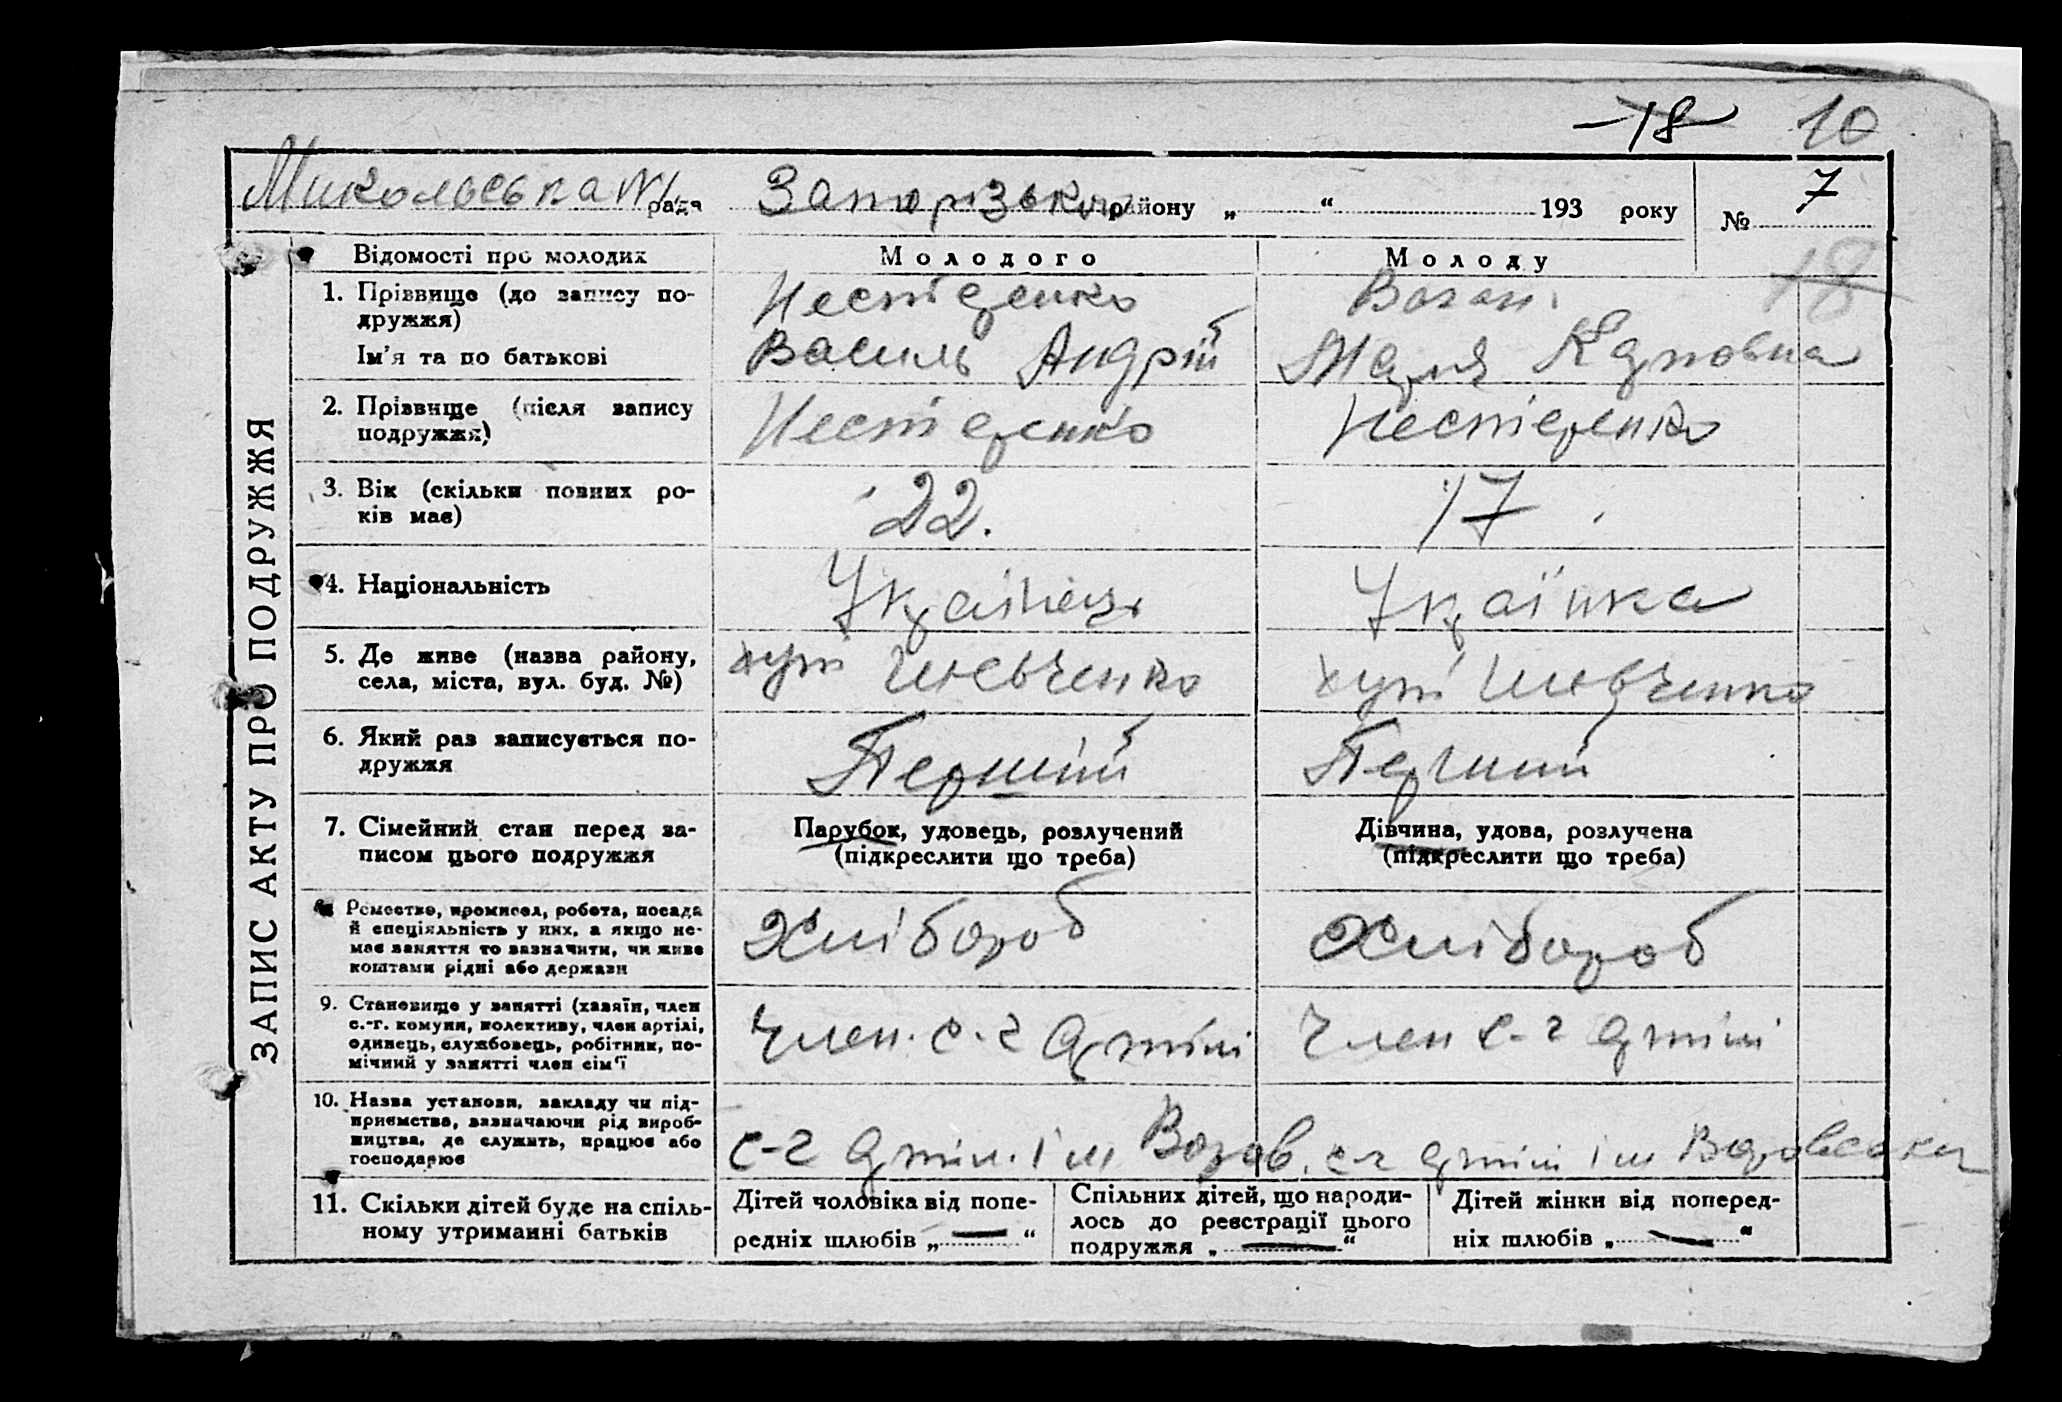 18 10
Микольська №1 рада Запорізького району „ “ 193 року № 7
18
Відомості про молодих Молодого Молоду
1. Прізвище (до запису по-
дружжя)
Нестеренко
Ім’я та по батькові Василь Андрій Марія Карповна
2. Прізвище (після запису
подружжя)
Нестеренко Нестеренко
3. Вік (скільки повних ро-
ків має)
22. 17
4. Національність Українець Українка
5. Де живе (назва району,
села, міста, вул. буд. №)
хут Шевченко хут Шевченко
6. Який раз записується по-
дружжя
Перший Перший
7. Сімейний стан перед за-
писом цього подружжя
Парубок, удовець, розлучений
(підкреслити що треба)
Дівчина, удова, розлучена
(підкреслити що треба)
8. Ремество, промисел, робота, посада
й спеціяльність у них, а якщо не-
має заняття то зазначити, чи живе
коштами рідні або держави
Хлібороб Хлібороб
9. Становище у занятті (хазяїн, член
с.-г. комуни, колективу, член артілі,
одинець, службовець, робітник, по-
мічний у занятті член сім’ї
Член. с-г артілі Член с-г артілі
10. Назва установи, закладу чи під-
приємства, зазначаючи рід вироб-
ництва, де служить, працює або
господарює
с-г артіл. ім Воров. с-г артілі ім Воровського
11. Скільки дітей буде на спіль-
ному утриманні батьків
Дітей чоловіка від попе-
редніх шлюбів „ — “
Спільних дітей, що народи-
лось до реєстрації цього
подружжя „ — “
Дітей жінки від поперед-
ніх шлюбів „ — “
ЗАПИС АКТУ ПРО ПОДРУЖЖЯ